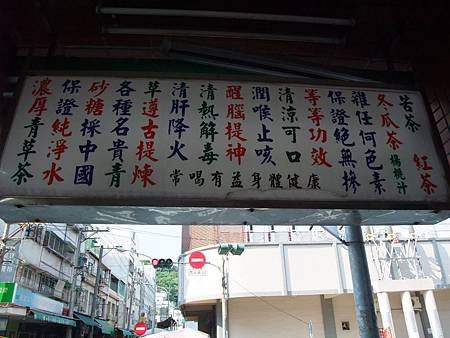 濃厚青草茶
保證純淨水
砂糖採中國
各種名貴青
草遵古提煉
清肝降火
清熱解毒
醒腦提神
潤喉止咳
清涼可口
等等功效
常喝有益身體健康
保證絕無摻
雜任何色素
冬瓜茶
楊桃汁
苦茶
紅茶